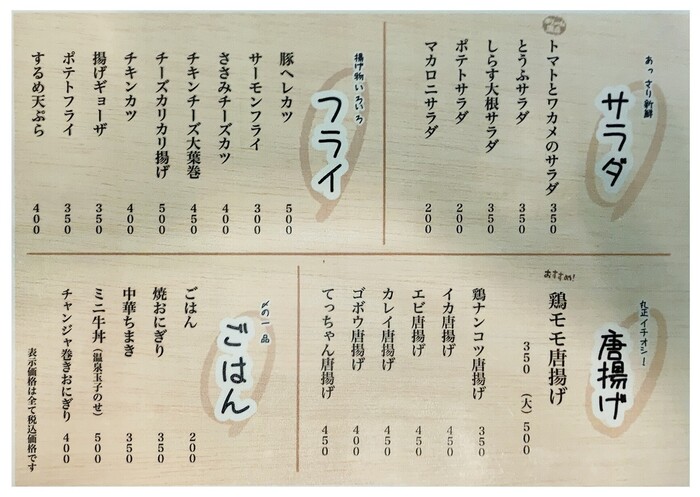 あっさり新鮮
サラダ
トマトとワカメのサラダ 350
とうふサラダ 350
しらす大根サラダ 350
ポテトサラダ 200
マカロニサラダ 200
揚げ物いろいろ
フライ
豚ヘレカツ 500
サーモンフライ 300
ささみチーズカツ 400
チキンチーズ大葉巻 450
チーズカリカリ揚げ 500
チキンカツ 400
揚げギョーザ 350
ポテトフライ 350
するめ天ぷら 400
丸正イチオシー
唐揚げ
おすすめ!
鶏モモ唐揚げ
350 (大)500
鶏ナンコツ唐揚げ 350
イカ唐揚げ 450
エビ唐揚げ 450
カレイ唐揚げ 450
ゴボウ唐揚げ 400
てっちゃん唐揚げ 450
〆の一品
ごはん
ごはん 200
焼おにぎり 350
中華ちまき 350
ミニ牛丼(温泉玉子のせ) 500
チャンジャ巻きおにぎり 400
表示価格は全て税込価格です